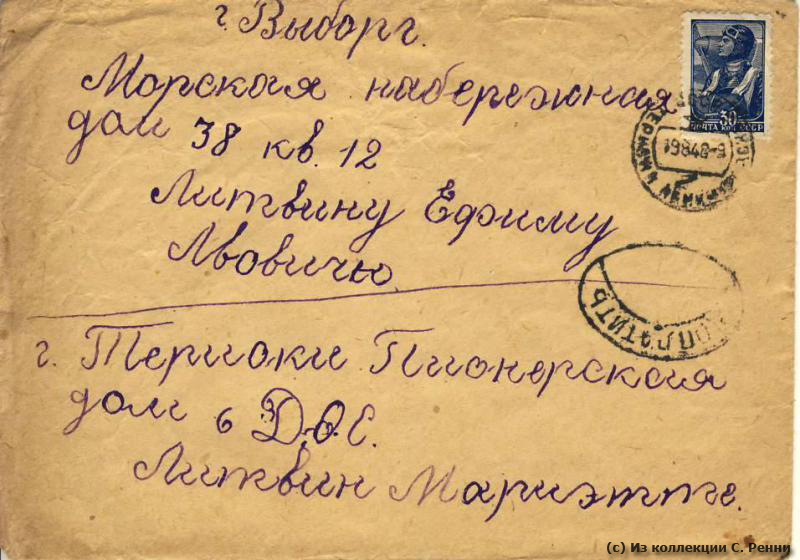 г. Выборг.
Морская набережная
дом 38 кв. 12
Литвину Ефиму
Львовичю
г. Териоки Пионерская
дом 6 Д.О.С.
Литвин Мариэтте.
30
ПОЧТА КОП. СССР
ДОПЛАТИТЬ
(c) Из коллекции С. Ренни